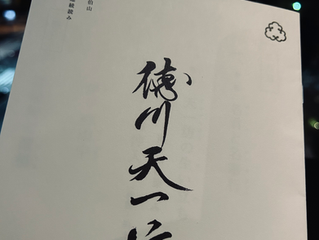 徳川天一
伯山
続読み